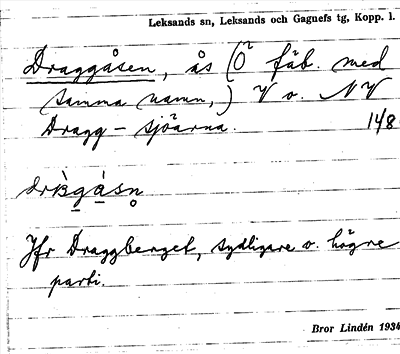 Leksands sn, Leksands och Gagnefs tg, Kopp. l.
Draggåsen, ås (Ö fäb. med
samma namn,) V o. NV
Dragg-sjöarna. 148
Jfr Draggberget, sydligare o. högre
parti.
Bror Lindén 1934